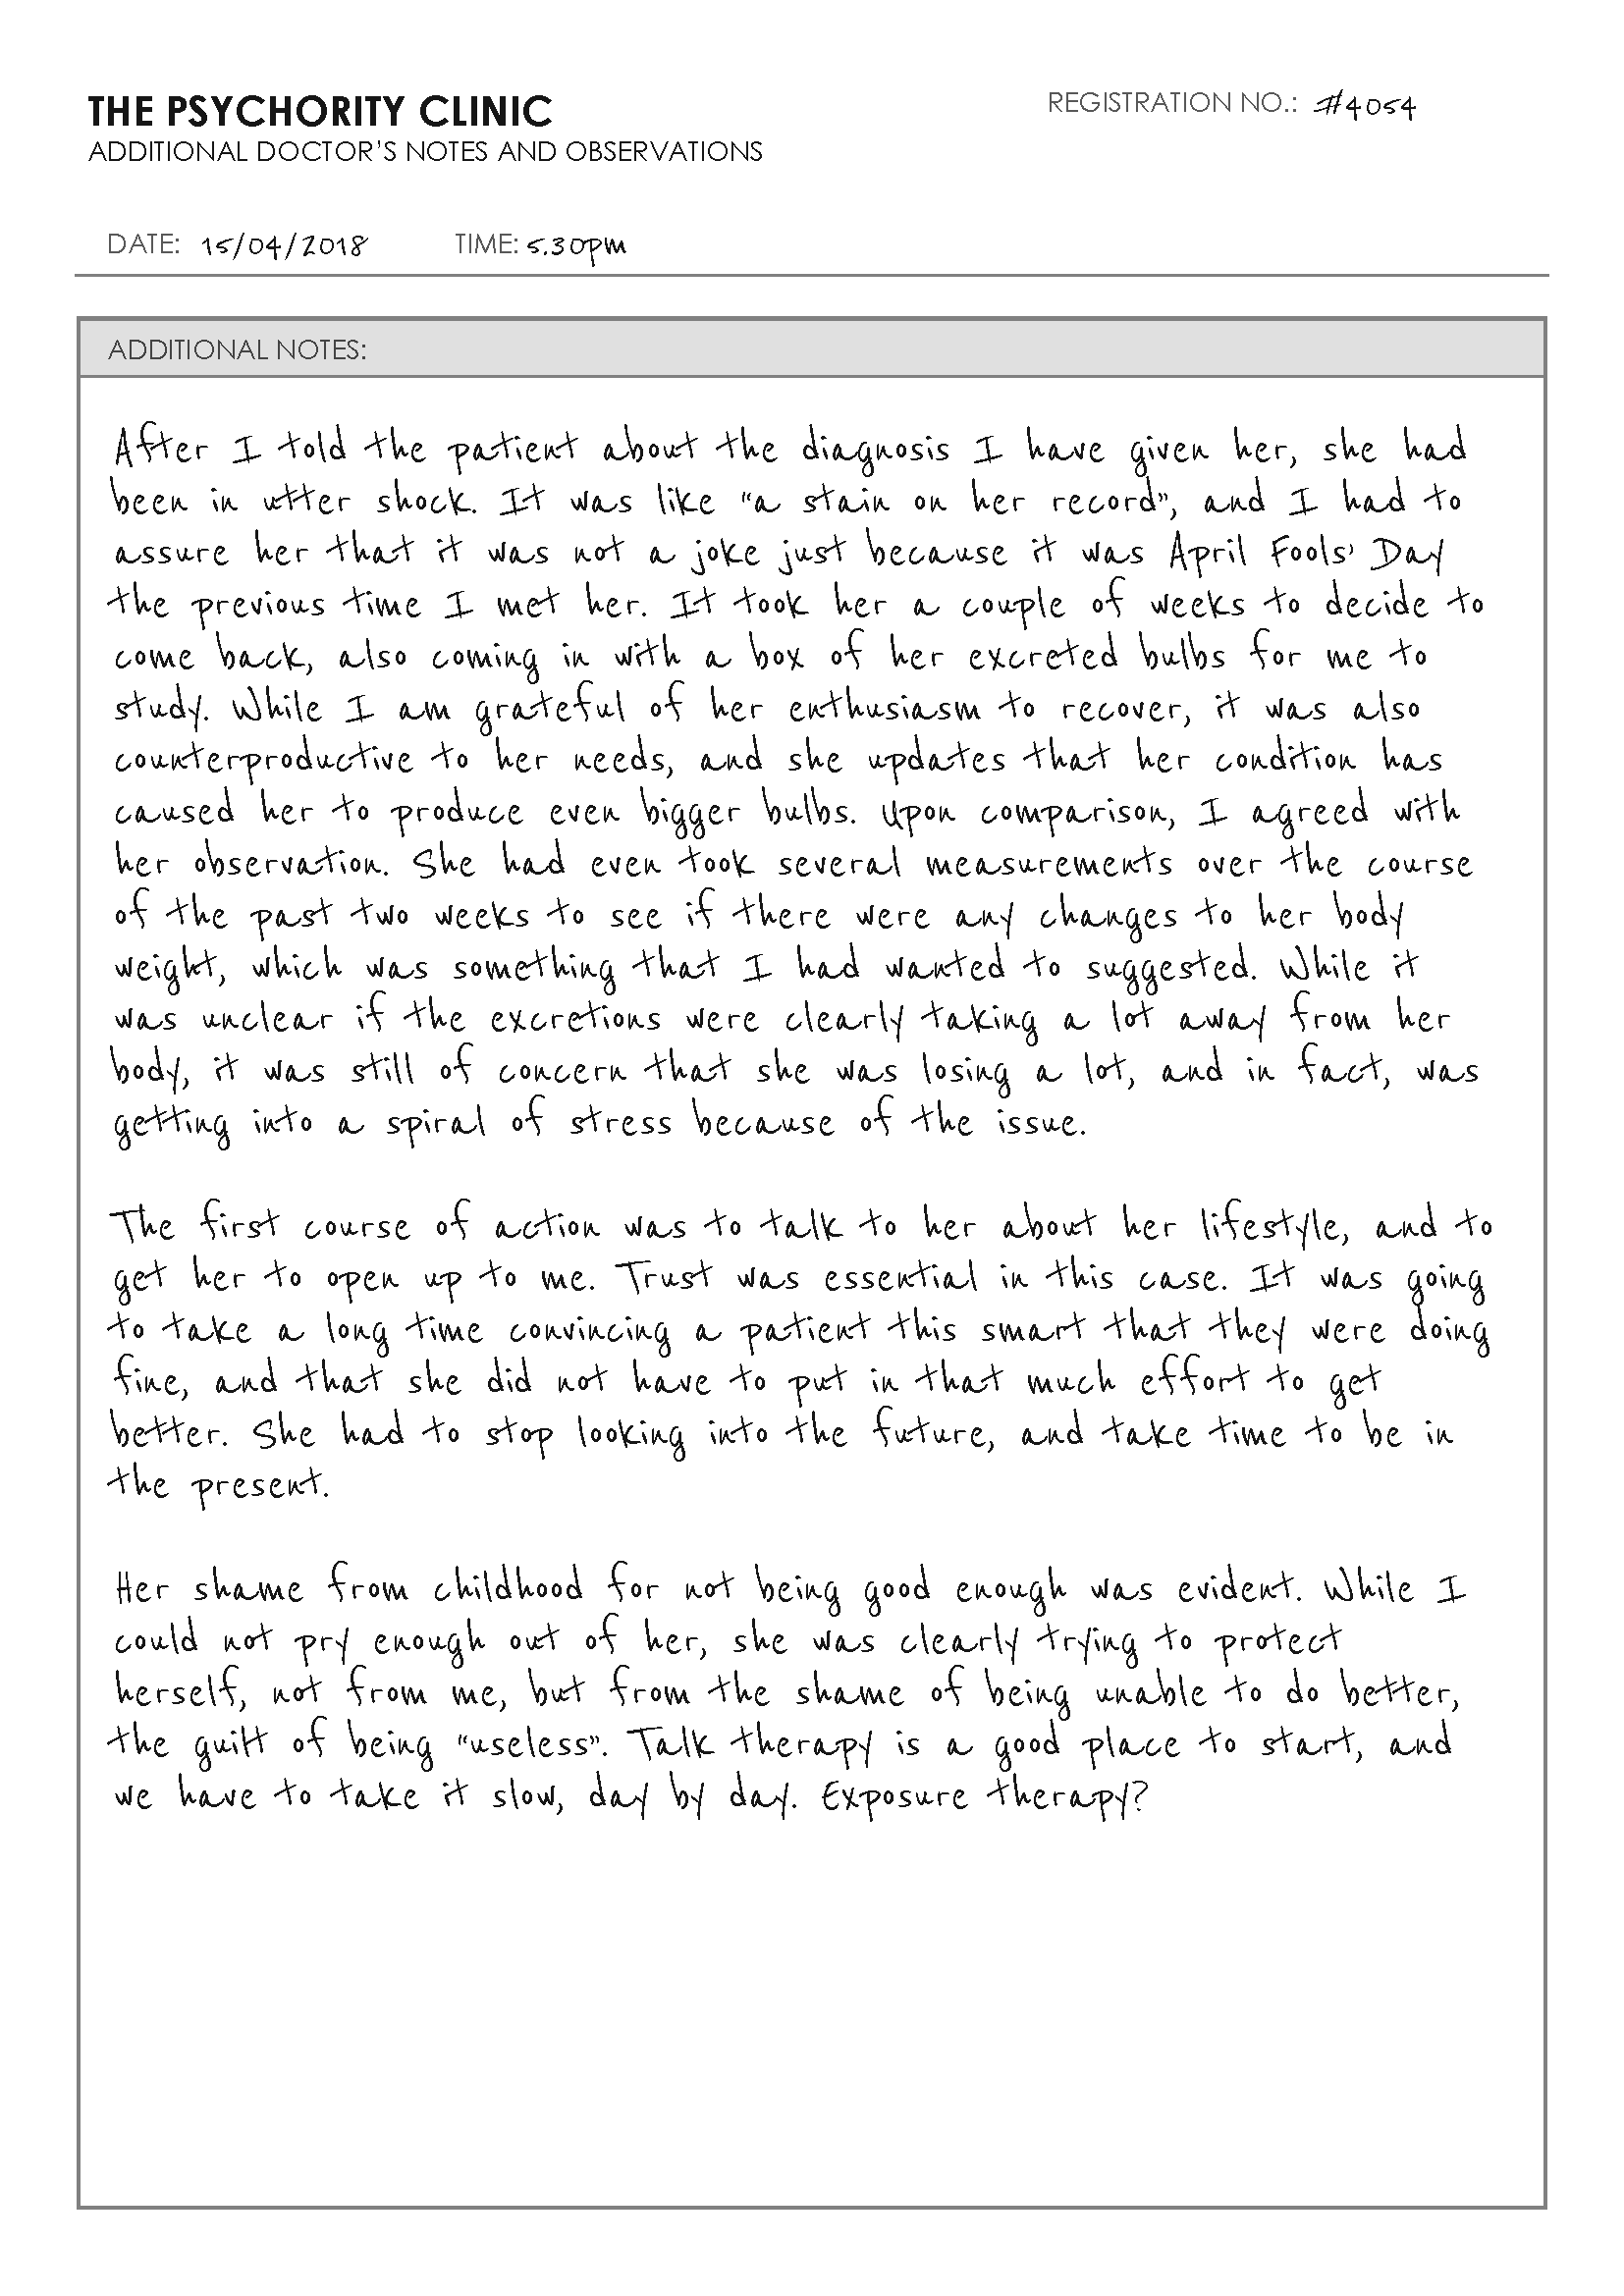 THE PSYCHORITY CLINIC
REGISTRATION NO.: #4054
ADDITIONAL DOCTOR'S NOTES AND OBSERVATIONS
DATE: 15/04/2018 TIME: 5.30pm
ADDITIONAL NOTES:
After I told the patient about the diagnosis I have given her, she had
been in utter shock. It was like "a stain on her record", and I had to
assure her that it was not a joke just because it was April Fools' Day
the previous time I met her. It took her a couple of weeks to decide to
come back, also coming in with a box of her excreted bulbs for me to
study. While I am grateful of her enthusiasm to recover, it was also
counterproductive to her needs, and she updates that her condition has
caused her to produce even bigger bulbs. Upon comparison, I agreed with
her observation. She had even took several measurements over the course
of the past two weeks to see if there were any changes to her body
weight, which was something that I had wanted to suggested. While it
was unclear if the excretions were clearly taking a lot away from her
body, it was still of concern that she was losing a lot, and in fact, was
getting into a spiral of stress because of the issue.
The first course of action was to talk to her about her lifestyle, and to
get her to open up to me. Trust was essential in this case. It was going
to take a long time convincing a patient this smart that they were doing
fine, and that she did not have to put in that much effort to get
better. She had to stop looking into the future, and take time to be in
the present.
Her shame from childhood for not being good enough was evident. While I
could not pry enough out of her, she was clearly trying to protect
herself, not from me, but from the shame of being unable to do better,
the guilt of being "useless". Talk therapy is a good place to start, and
we have to take it slow, day by day. Exposure therapy?